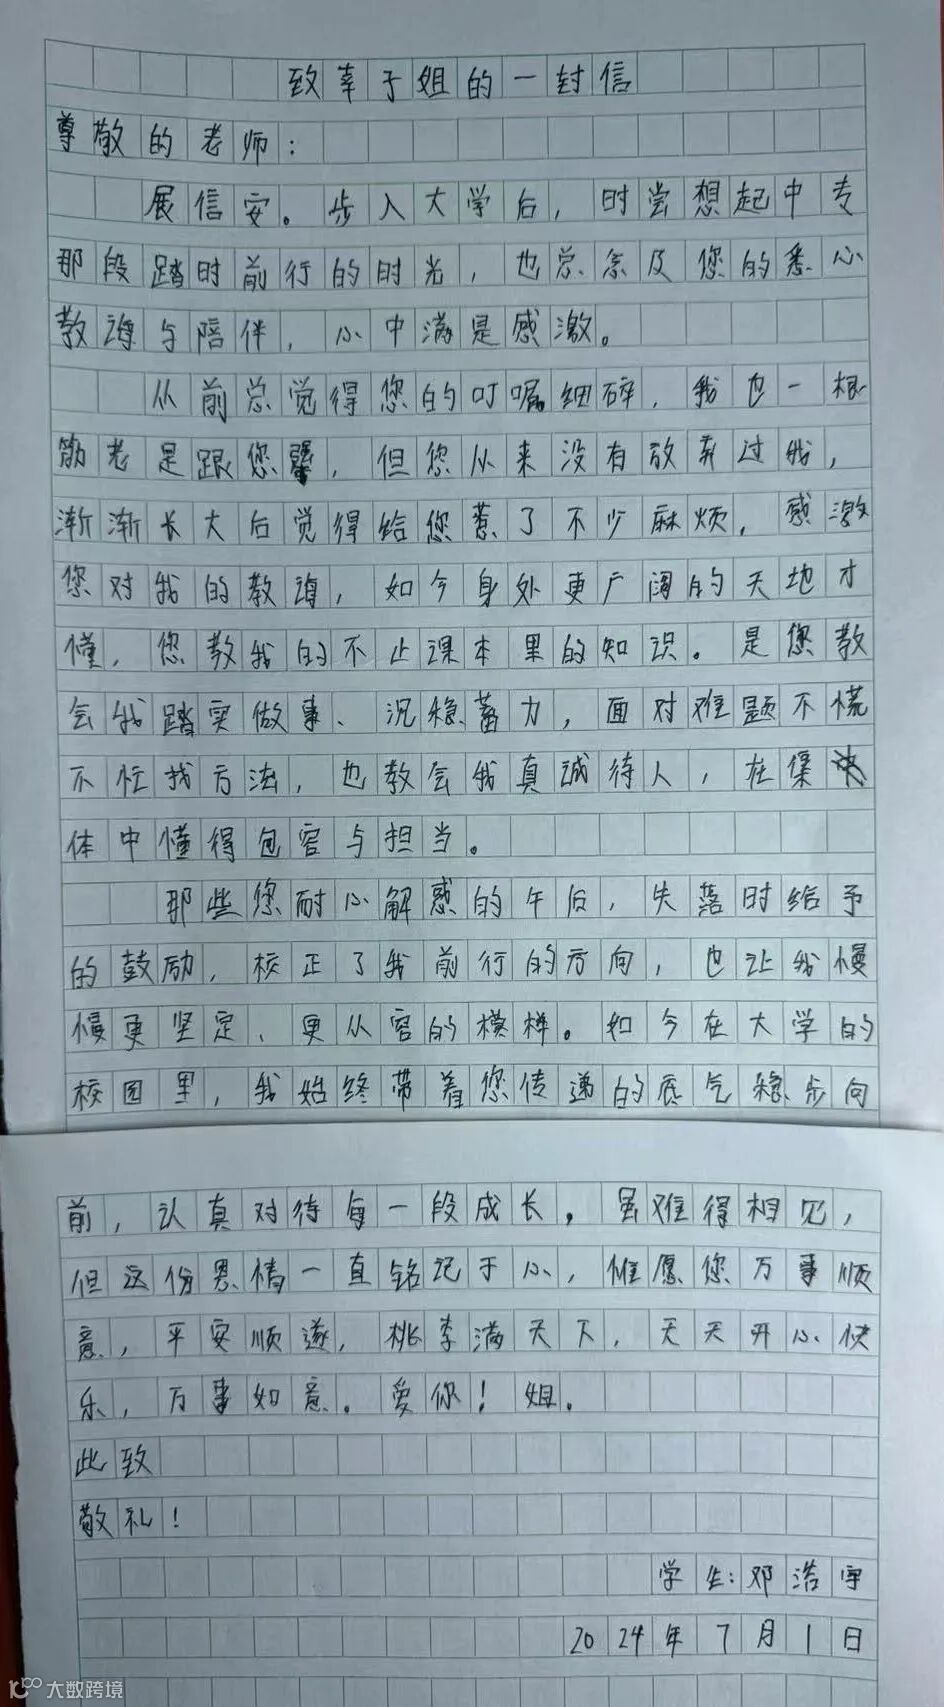 致幸于姐的一封信
尊敬的老师：
展信安。步入大学后，时尝想起中专
那段踏时前行的时光，也总念及您的悉心
教诲与陪伴，心中满是感激。
从前总觉得您的叮嘱细碎，我也一根
筋老是跟您犟，但您从来没有放弃过我，
渐渐长大后觉得给您惹了不少麻烦，感激
您对我的教诲，如今身处更广阔的天地才
懂，您教我的不止课本里的知识。是您教
会我踏实做事、沉稳蓄力，面对难题不慌
不忙找方法，也教会我真诚待人，在集
体中懂得包容与担当。
那些您耐心解惑的午后，失落时给予
的鼓励，校正了我前行的方向，也让我慢
慢更坚定、更从容的模样。如今在大学的
校园里，我始终带着您传递的底气稳步向
前，认真对待每一段成长。虽难得相见，
但这份恩情一直铭记于心，惟愿您万事顺
意，平安顺遂，桃李满天下，天天开心快
乐，万事如意。爱你！姐。
此致
敬礼！
学生：邓浩宇
2024年7月1日
大数跨境